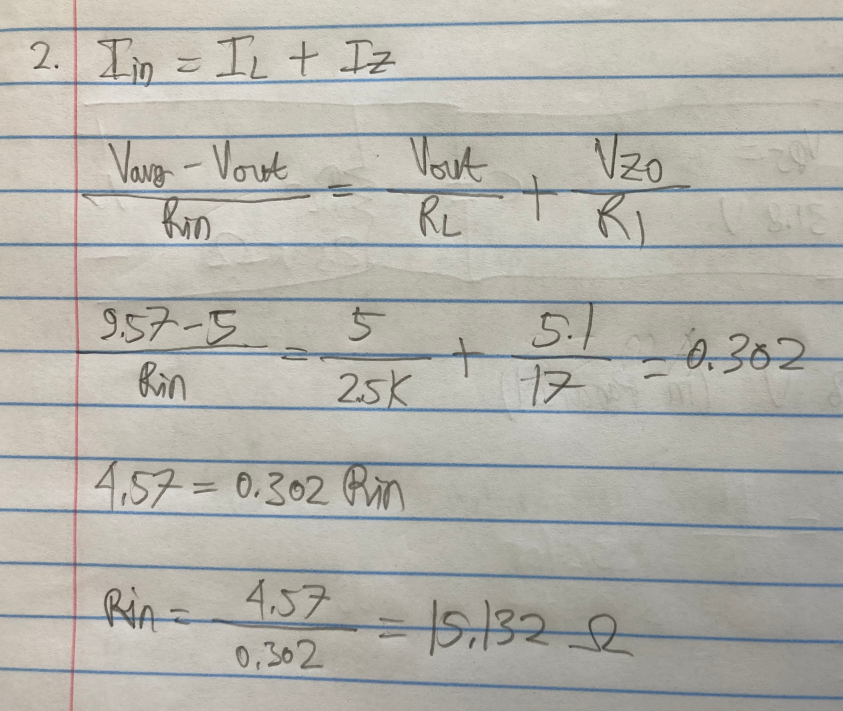 2. Iin = IL + Iz
Vavg - Vout / Rin = Vout / RL + VZO / R1
9.57-5 / Rin = 5 / 2.5K + 5.1 / 17 = 0.302
4.57 = 0.302 Rin
Rin = 4.57 / 0.302 = 15.132 Ω